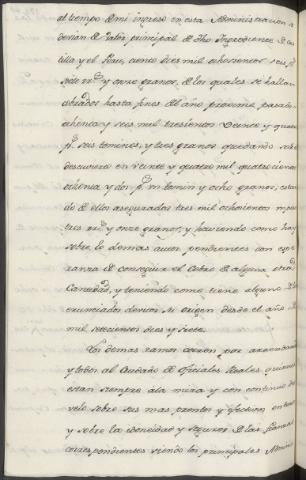 al tiempo de mi ingreso en esta Administracion
de valor principal de dho Ingrediente de
illa y el Peru, ciento diez mil ochocientos seis ps
siete rrs y onze granos, de los quales se hallan
cobrados hasta fines del año proximo pasado
ochenta y seis mil trescientos veinte y quatro
ps seis tomines, y tres granos quedando solo
descubierto en veinte y quatro mil quatrocientos
ochenta y dos ps un tomin y ocho granos, estan
do de ellos asegurados tres mil ochocientos
tres y onze granos; y haviendo como hay
sobre lo demas autos pendientes con espe
ranza de conseguir el Cobro de alguna otra
Cantidad, y teniendo como tiene alguno de los
enunciados devitos su origen desde el año de
mil setecientos diez y siete.
Los demas ramos corren por arrendamiento
y todos al Cuidado de Oficiales Reales quienes
estan siempre á la mira y con continuo des
velo sobre sus mas prontos y efectivos enteros
y sobre la idoneidad y seguros de las fianzas
correspondientes siendo los principales